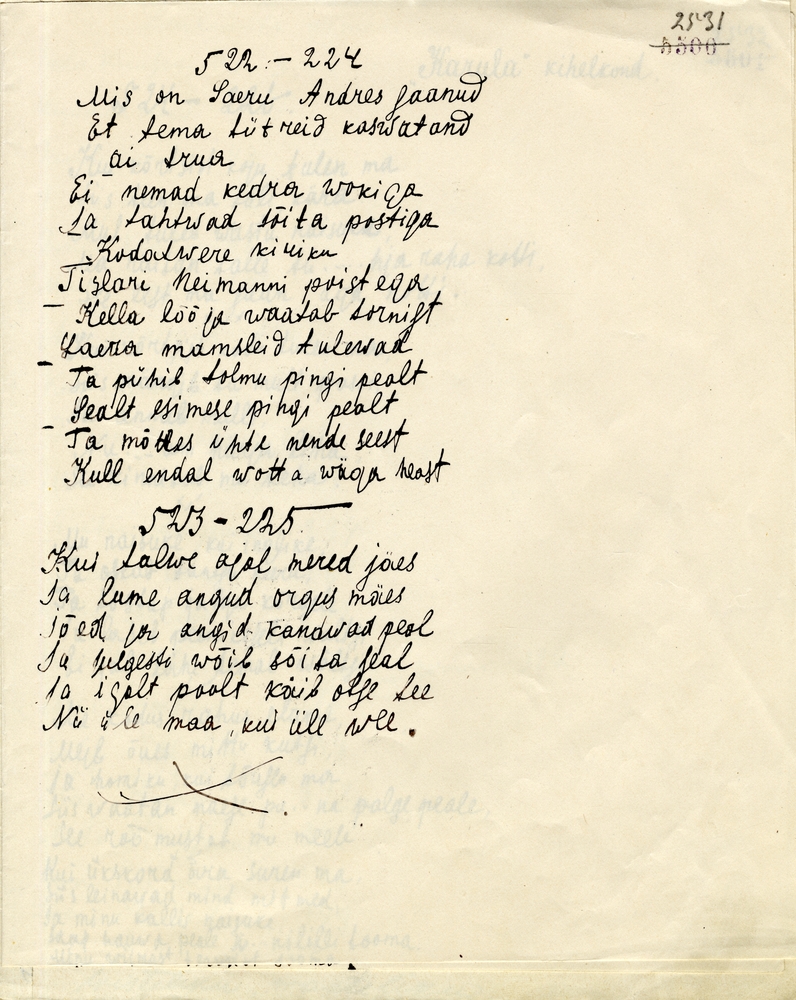 2531
5500
522.- 224
Mis on Saeru Andres saanud
Et tema tütreid kaswatand
ai trua
Ei nemad kedra wokiga
Ja tahtwad sõita postiga
Kodatwere kiriku
Tislari Neimanni poistega
- Kella lööja waatab tornist
Saeru mamsleid tulewad
- Ta pühib tolmu pingi pealt
Sealt esimese pingi pealt
- Ta mõttes ühte nende seest
Kull endal wotta wäga heast
523 - 225
Kui talwe ajal mered jäes
Ja lume angud orgus mäes
Jõed ja angid kandwad peal
Ja julgesti wõib sõita seal
Ja igalt poolt käib otse tee
Nii üle maa, kui üll wee.